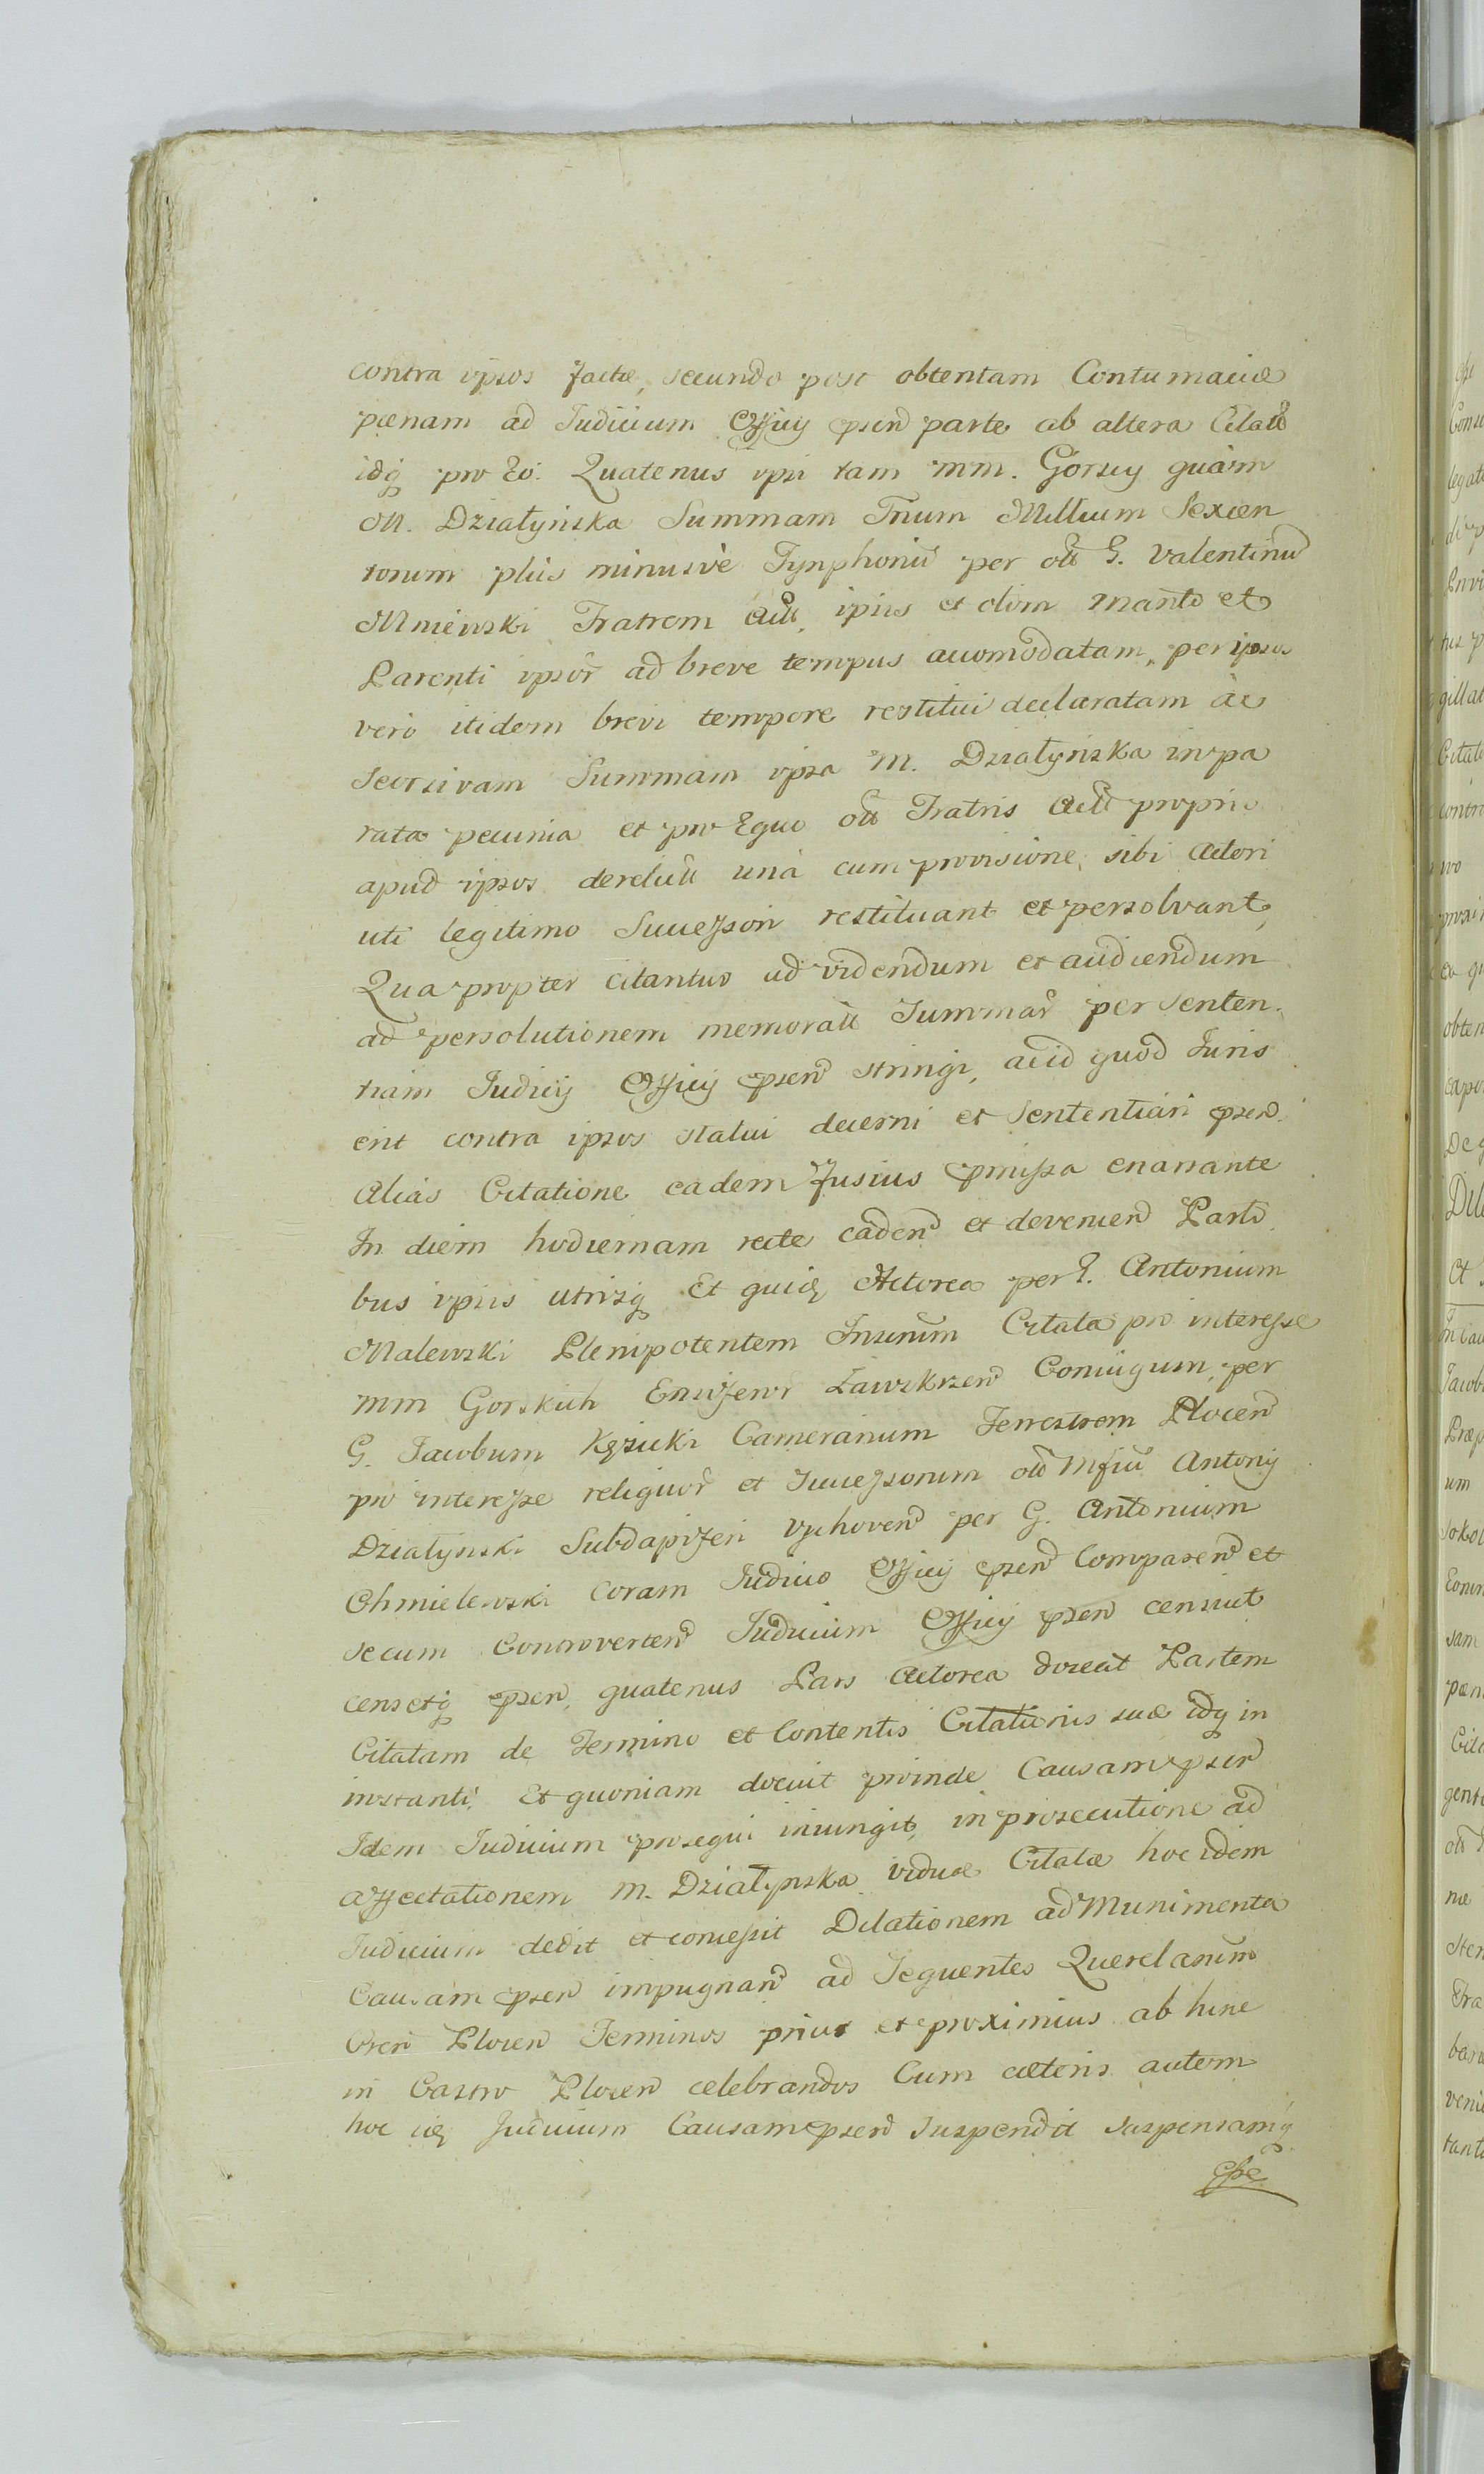 contra ipsos factæ, secundo post obtentam Contumaciæ
pœnam ad Judicium Officij pñen parte ab altera Citate
idq pro Eo. Quatenus ipsi tam mm. Gorscy quàm
M. Działyńska Summam Trium Millium Sexcen
torum plùs minusvè Tynphonū per olī G. Valentinū
Mniewski Fratrem Act. ipius et olim Marito et
Parenti ipsor ad breve tempus accomodatam, per ipsos
verò itidem brevi tempore restitui declaratam ac
seorsivam Summam ipsa M. Działyńska in pa
rata pecunia et pro Equo olī Fratris Act proprio
apud ipsos derelict unà cum provisione, sibi Actori
uti legitimo Successori restituant et persolvant,
Qua propter citantur ad videndum et audiendum
ad persolutionem memorat Summar per senten
tiam Judicij Officij pñen stringi, acid quod Juris
erit contra ipsos statui decerni et sententiari pñen.
Aliàs Citatione eadem fusius pmissa enarrante
In diem hodiernam recte caden et devenien Parti
bus ipiis utrisq Et quid Actorea per G. Antonium
Malewski Plenipotentem Inserum Citata pro interesse
mm Gorskich Ensiferor Zawskrzen Coniugum, per
G. Jacobum Kęsicki Camerarium Terrestrem Plocen
pro interesse reliquor et Successorum olī Mfici Antonij
Działynski Subdapiferi Vychoven per G. Antonium
Chmielewski coram Judicio Officij pñen Comparen et
secum Controverten Judicium Officij pñen censuit
censetq pñen, quatenus Pars Actorea doceat Partem
Citatam de Termino et Contentis Citationis suæ idq in
instanti, Et quoniam docuit proinde Causam pñen
Idem Judicium prosequi iniungit, in prosecutione ad
affectationem M. Działynska viduæ Citatæ hoc idem
Judicium dedit et concessit Dilationem ad Munimenta
Causam pñen impugnan ad Sequentes Querelarum
Oren Plocen Terminos prius et proximius ab hinc
in Castro Plocen celebrandos Cum cæteris autem
hoc id Judicium Causam pñen suspendit suspensamq
esse